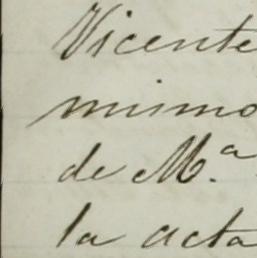 Vicente
mismo
de M.ª
la acta